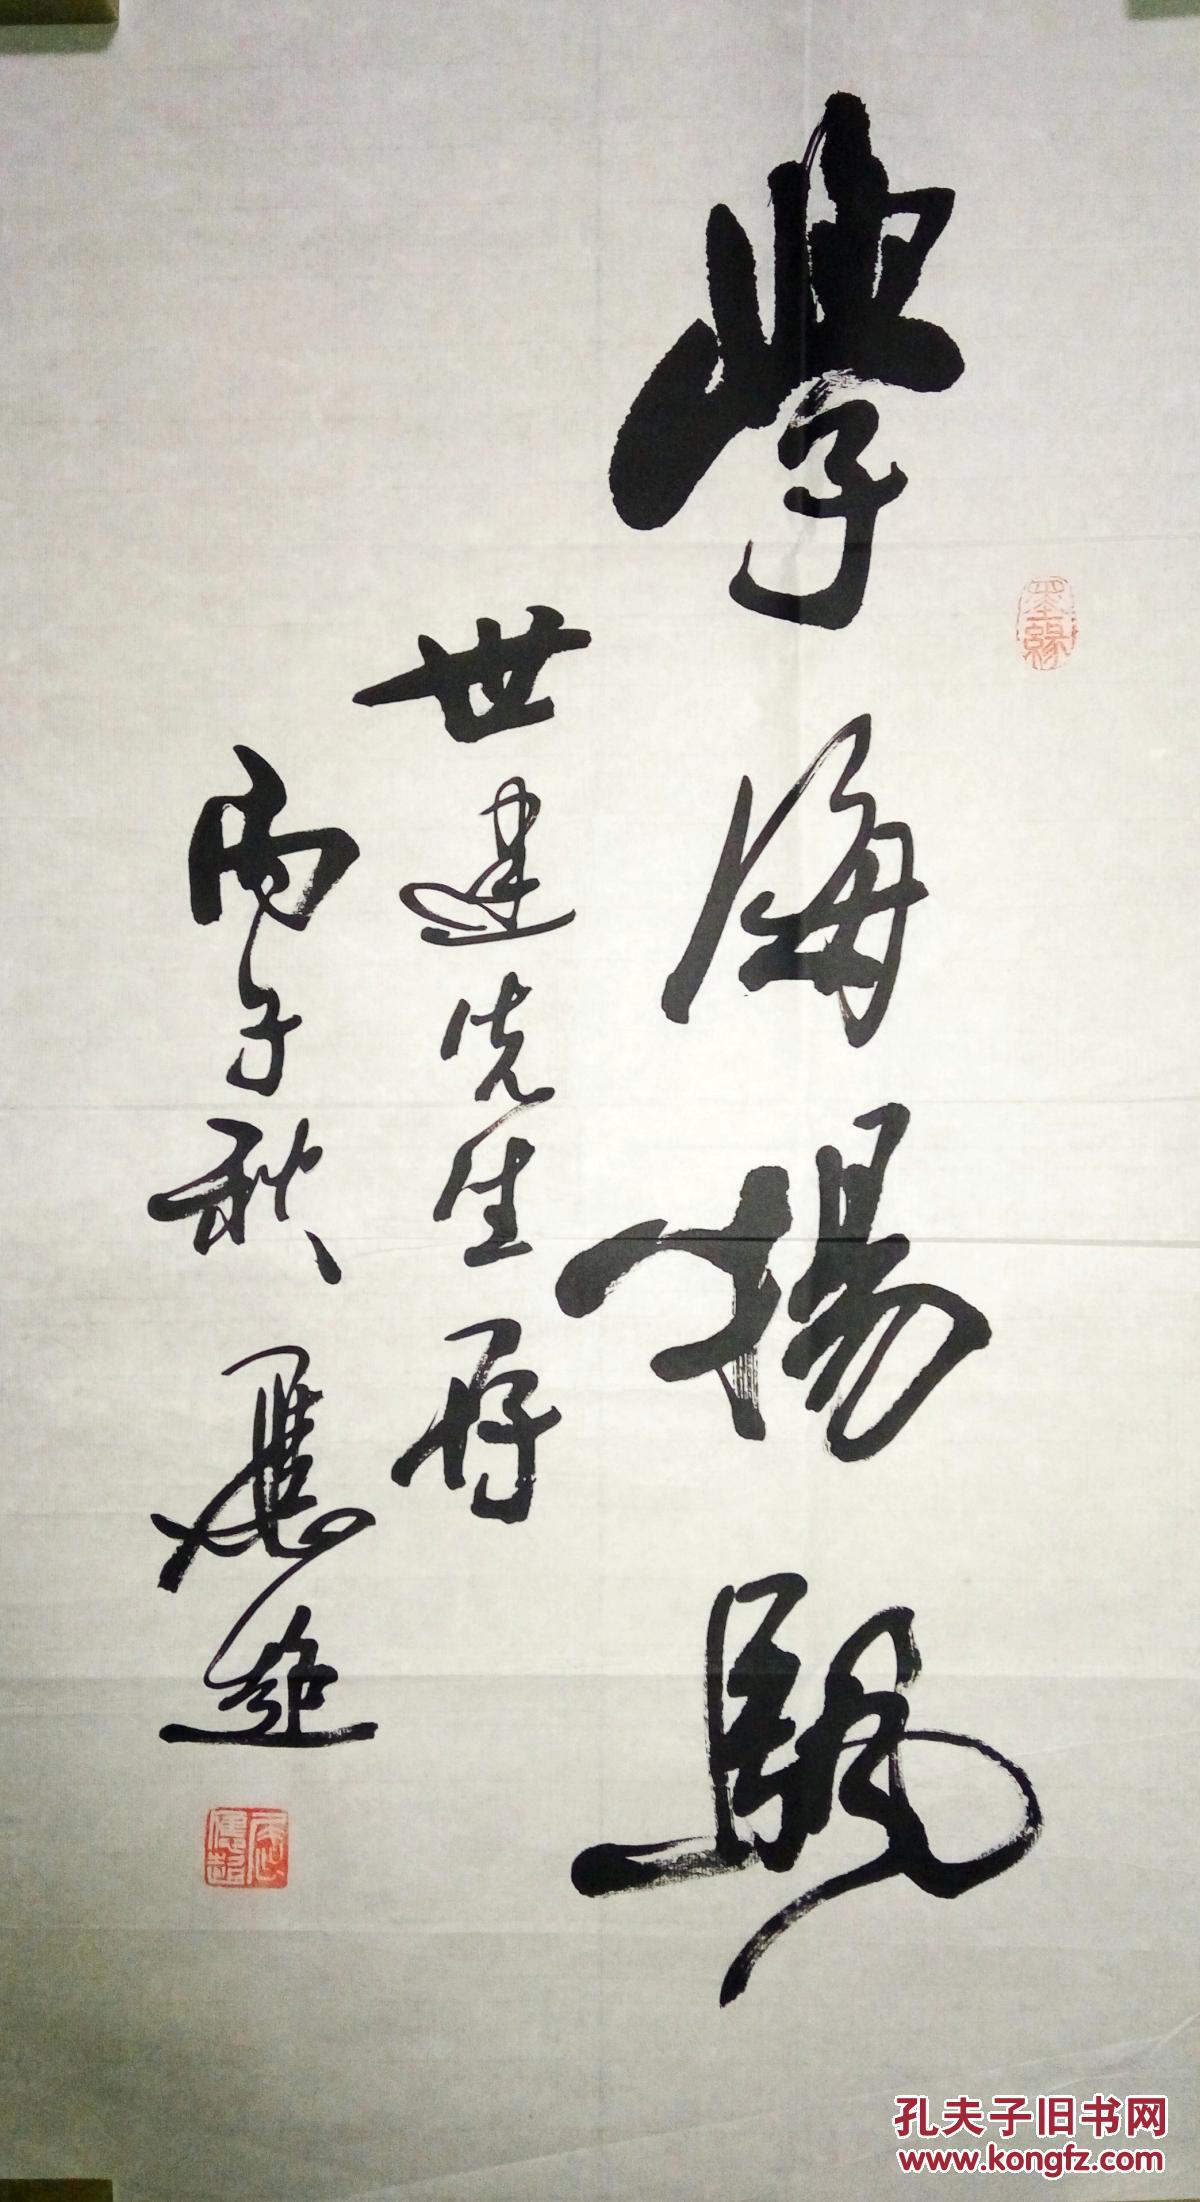 學海揚颿
墨緣
世建先生存
丙子秋 應超
孔夫子旧书网
www.kongfz.com